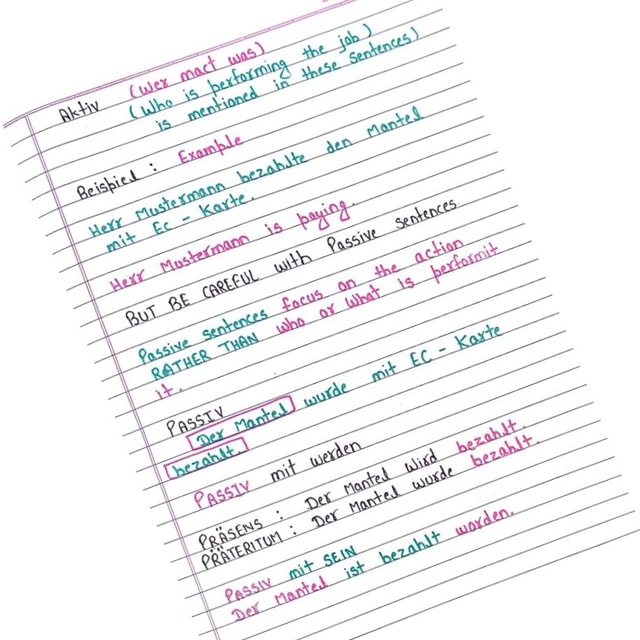 Aktiv (wer mact was)
(Who is performing the job)
is mentioned in these Sentences)
Beispiel : Example
Herr Mustermann bezahlte den Mantel
mit Ec - Karte.
Herr Mustermann is paying.
BUT BE CAREFUL with Passive Sentences
Passive sentences focus on the action
RATHER THAN who or what is performit
it.
PASSIV
Der Mantel wurde mit EC - Karte
bezahlt.
PASSIV mit werden
PRÄSENS : Der Mantel wird bezahlt.
PRÄTERITUM : Der Mantel wurde bezahlt.
PASSIV mit SEIN
Der Mantel ist bezahlt worden.